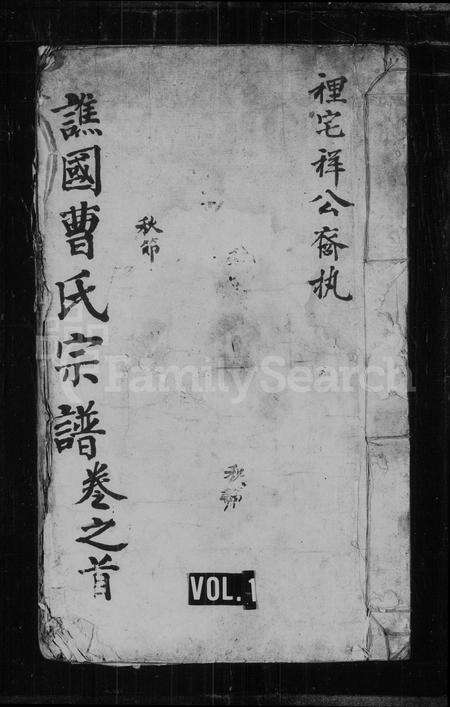 裡宅祥公裔执
秋節
秋節
譙國曹氏宗譜卷之首
VOL. 1
FamilySearch